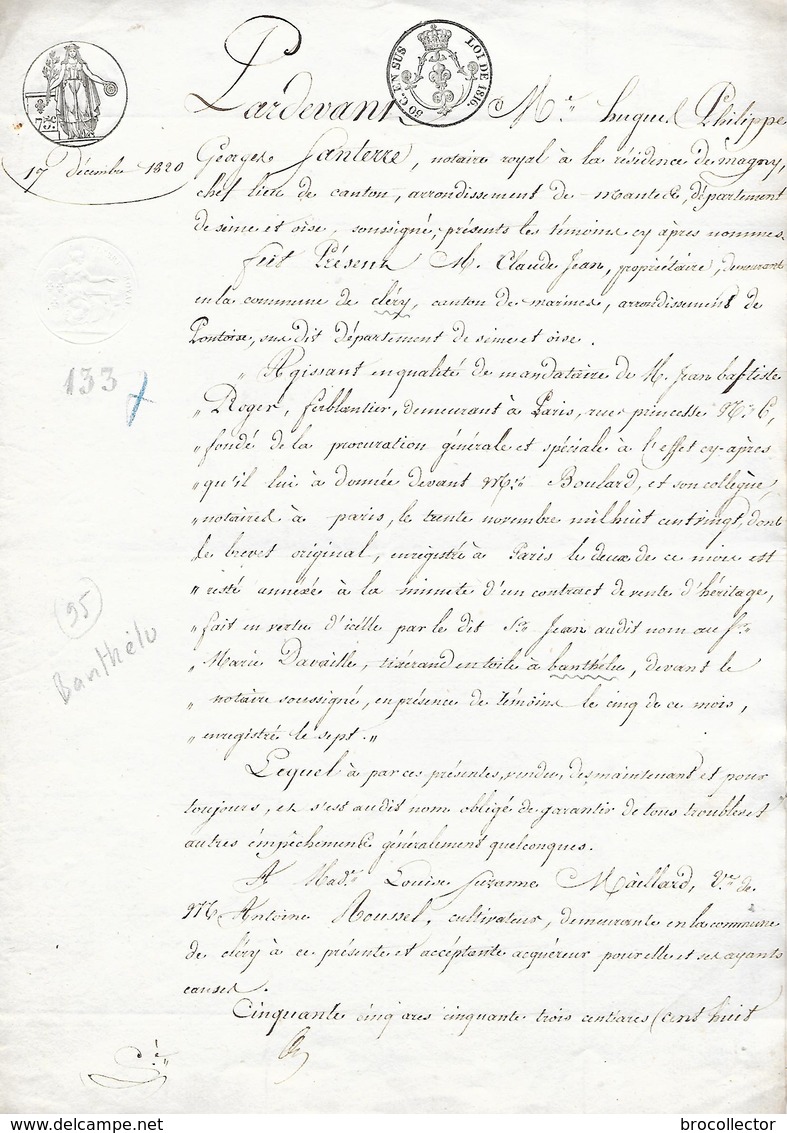 50 C. EN SUS LOI DE 1816.
17 décembre 1820
Pardevant Me. hugues Philippe
Georges Santerre, notaire royal à la résidence de magny,
chef lieu de canton, arrondissement de mantes, département
de seine et oise, soussigné, présents les témoins cy après nommés.
fut Présent M. Claude Jean, propriétaire, demeurant
en la commune de cléry, canton de marines, arrondissement de
Pontoise, sus dit département de seine et oise.
133
" Agissant en qualité de mandataire de M. Jean baptiste
" Roger, ferblantier, demeurant à Paris, rue princesse No. 6,
" fondé de la procuration générale et spéciale à l'effet cy-après
" qu'il lui à donnée devant Me. Boulard, et son collègue,
" notaires à paris, le trente novembre mil huit cent vingt, dont
" le brevet original, enregistré à Paris le deux de ce mois est
" resté annéxée à la minute d'un contract de vente d'héritage,
" fait en vertu d'icelle par le dit Sr. Jean audit nom au Sr.
" Marie Davaille, tisérand en toile à banthélu, devant le
" notaire soussigné, en présence de témoins le cinq de ce mois,
" enregistré le sept. "
95
Banthélu
Lequel à par ces présentes, vendu, des maintenant et pour
toujours, et s'est audit nom obligé de garantir de tous troubles et
autres émpêchements généralement quelconques.
A Made. Louise Suzanne Maillard, Ve. de
M. Antoine Roussel, cultivateur, demeurante en la commune
de cléry à ce présente et accéptante acquéreur pour elle et ses ayants
causes.
Cinquante cinq ares cinquante trois centiares (cent huit
delcampe.net
brocollector